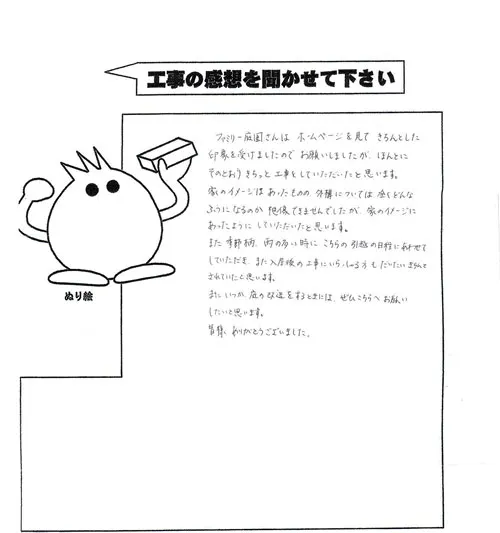 工事の感想を聞かせて下さい
ファミリー庭園さんは ホームページを見て きちんとした
印象を受けましたので お願いしましたが、ほんとに
そのとおり きちっと 工事をしていただいたと思います。
家のイメージは あったものの 外構については 全くどんな
ふうになるのか 想像できませんでしたが、家のイメージに
あったように していただいたと思います。
また 季節柄、雨の多い時に こちらの引越の日程にあわせて
していただき、また入居後の工事にいらっしゃる方も だいたい きちんと
されていたと思います。
また いつか 庭の改造をするときには、ぜひ こちらへ お願い
したいと思います。
皆様、ありがとうございました。
ぬり絵